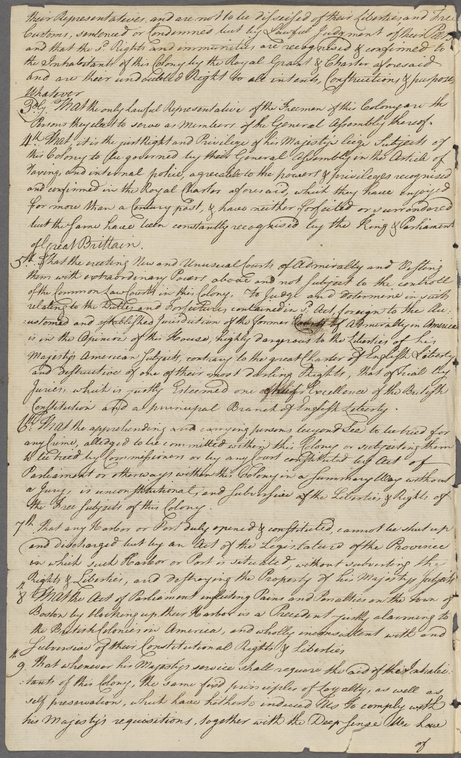 their Representatives, and are not to be disseised of their Liberties and Free
Customs, sentenced or Condemned but by Lawful Judgment of their Peers
and that the sd Rights and immunities are recognised & confirmed to
the Inhabitants of this Colony by the Royal Grant & Charter aforesaid
and are their undoubted Right to all intents, Constructions & purposes
Whatever
3dly That the only Lawful Representatives of the Freemen of this Colony are the
Persons they elect to serve as Members of the General Assembly thereof.
4th That, it is the just Right and Privilege of his Majesty's liege Subjects of
this Colony to be governed by their General Assembly in the Article of
Taxing and internal police, agreeable to the powers & priviledges recognised
and confirmed in the Royal Charter aforesaid, which they have enjoyed
for more than a Century past, & have neither forfeited or surrendered
but the same have been constantly recognised by the King & Parliament
of Great Brittain.
5th That the erecting New and Unusual Courts of Admiralty and Vesting
them with extraordinary Powers above and not Subject to the controll
of the Common Law Courts in this Colony. To Judge and determine in suits
relating to the Duties and Forfeitures contained in sd Act, foreign to the Accustomed
and established jurisdiction of the former Courts of Admiralty in America
is in the Opinion of this House, highly dangerous to the Liberties of his
Majesty's American Subjects, contrary to the great Charter of English Liberty
and destructive of one of their most darling Rights, that of Trial by
Juries which is justly Esteemed one chief Excellence of the British
Constitution and a principal Branch of English Liberty.
6th That the apprehending and carrying persons beyond Sea to be tried for
any Crime, alledged to be committed within this Colony or subjecting them
to be tried by Commissioners or by any Court constituted by Act of
Parliament or otherways within this Colony in a Summary Way without
a Jury is unconstitutional, and Subversive of the Liberties & Rights of
the Free Subjects of this Colony.
7th That any Harbor or Port duly opened & constituted, cannot be shut up
and discharged but by an Act of the Legislature of the Province
in which such Harbor or Port is situated without subverting the
Rights & Liberties, and destroying the Property of his Majestys Subjects
8 That the Act of Parliament inflicting Pains and Penalties on the Town of
Boston by blocking up their Harbor is a Precedent justly alarming to
the British Colonies in America, and wholly inconsistent with and
Subversive of their Constitutional Rights & Liberties
9 That whenever his Majesty's service shall require the aid of the Inhabitants
of this Colony, the same fixed principles of Loyalty, as well as
self preservation, which have hitherto induced Us to comply with
his Majesty's requisitions, together with the Deep Sense We have
of